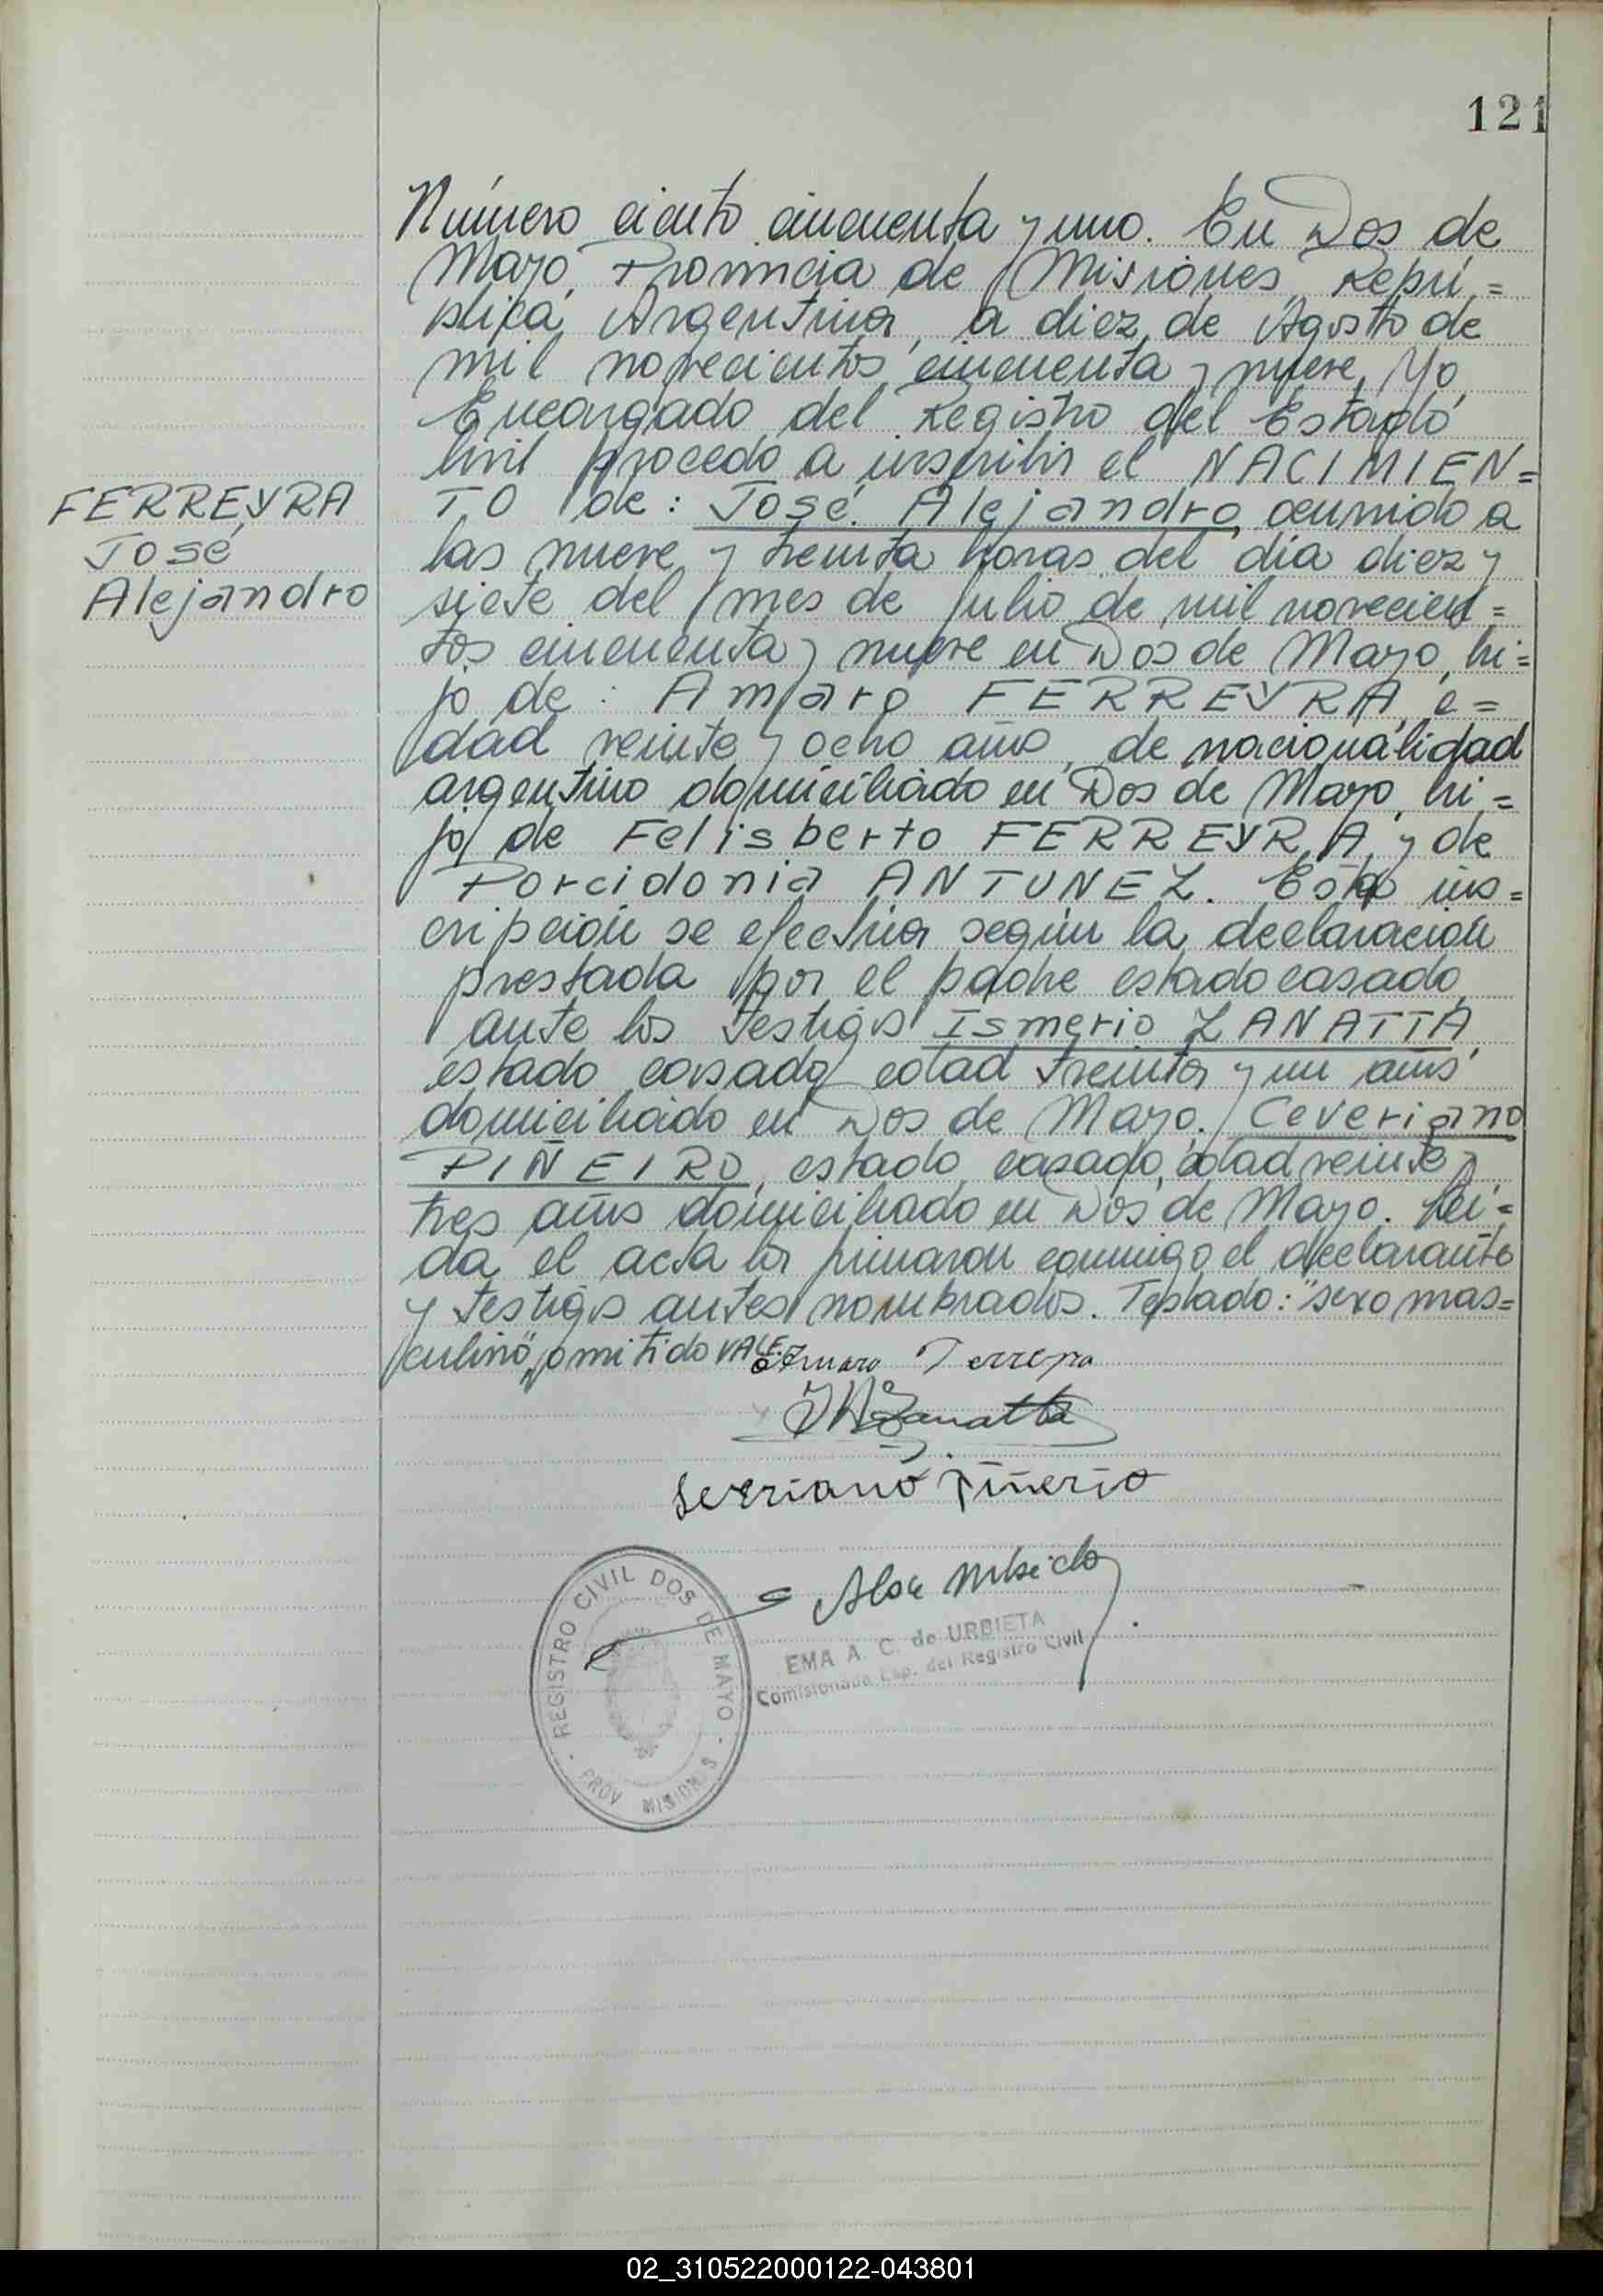 121
Número ciento cincuenta y uno. En Dos de
Mayo, Provincia de Misiones, Repú=
blica Argentina, a diez de Agosto de
mil novecientos cincuenta y nueve, Yo,
Encargado del Registro del Estado
Civil procedo a inscribir el NACIMIEN=
TO de: José Alejandro, ocurrido a
las nueve y treinta horas del día diez y
siete del mes de Julio de mil novecien=
tos cincuenta y nueve en Dos de Mayo, hi=
jo de: Amaro FERREYRA, e=
dad veinte y ocho años, de nacionalidad
argentino domiciliado en Dos de Mayo, hi=
jo de Felisberto FERREYRA, y de
Porcidonia ANTUNEZ. Esta ins=
cripción se efectúa según la declaración
prestada por el padre estado casado,
ante los testigos Ismerio ZANATTA
estado casado edad treinta y un años
domiciliado en Dos de Mayo. Ceveriano
PIÑEIRO, estado casado, edad veinte y
tres años domiciliado en Dos de Mayo. Leí=
da el acta la firmaron conmigo el declarante
y testigos antes nombrados. Testado: "sexo mas=
culino", omitido VALE.
FERREYRA
José
Alejandro
Amaro Ferreyra
Zanatta
Severiano Piñerio
REGISTRO CIVIL DOS DE MAYO
PROV MISIONES
EMA A. C. de URBIETA
Comisionada Esp. del Registro Civil
02_310522000122-043801